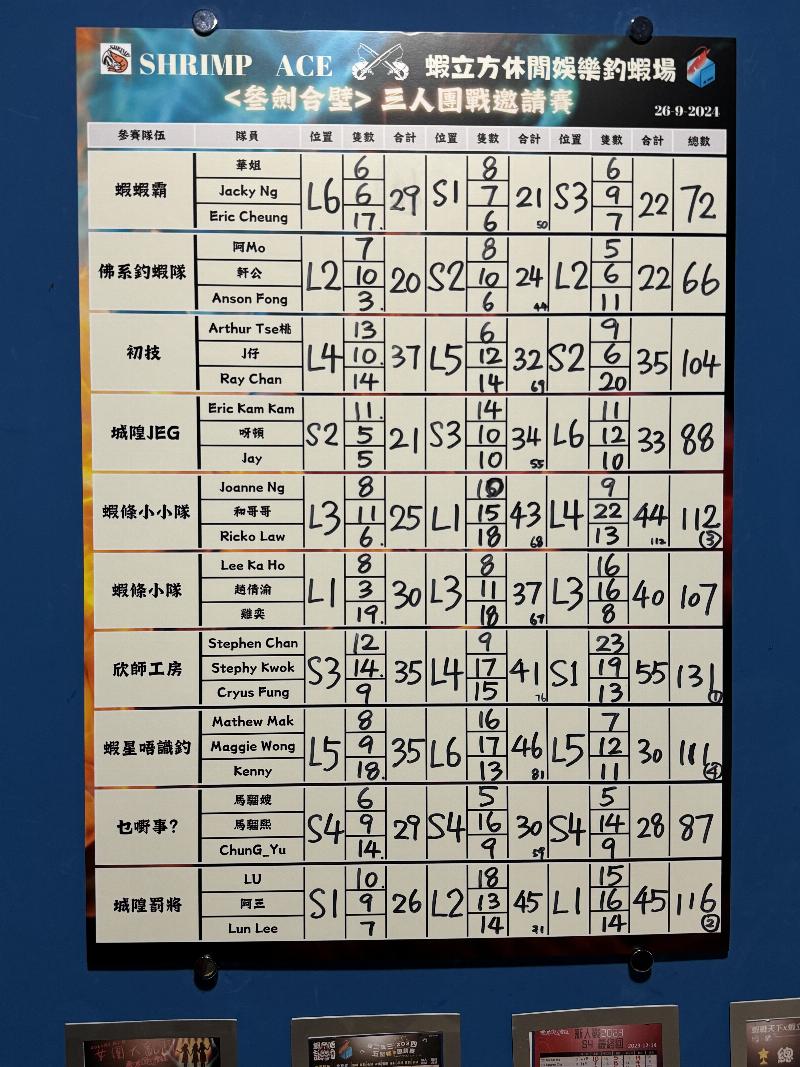 SHRIMP
SHRIMP ACE 蝦立方休閒娛樂釣蝦場
<叄劍合壁> 三人團戰邀請賽
26-9-2024
參賽隊伍 隊員 位置 隻數 合計 位置 隻數 合計 位置 隻數 合計 總數
華姐 6 8 6
蝦蝦霸 Jacky Ng L6 6 29 S1 7 21 S3 9 22 72
Eric Cheung 17. 6 50 7
阿Mo 7 8 5
佛系釣蝦隊 軒公 L2 10 20 S2 10 24 L2 6 22 66
Anson Fong 3. 6 44 11
Arthur Tse桃 13 6 9
初技 J仔 L4 10. 37 L5 12 32 S2 6 35 104
Ray Chan 14 14 69 20
Eric Kam Kam 11. 14 11
城隍JEG 呀頓 S2 5 21 S3 10 34 L6 12 33 88
Jay 5 10 55 10
Joanne Ng 8 10 9
蝦條小小隊 和哥哥 L3 11 25 L1 15 43 L4 22 44 112
Ricko Law 6. 18 68 13 112 ③
Lee Ka Ho 8 8 16
蝦條小隊 趙倩渝 L1 3 30 L3 11 37 L3 16 40 107
雞奕 19. 18 67 8
Stephen Chan 12 9 23
欣師工房 Stephy Kwok S3 14. 35 L4 17 41 S1 19 55 131
Cryus Fung 9 15 76 13 ①
Mathew Mak 8 16 7
蝦星唔識釣 Maggie Wong L5 9 35 L6 17 46 L5 12 30 111
Kenny 18. 13 81 11 ④
馬騮嫂 6 5 5
乜嘢事? 馬騮熙 S4 9 29 S4 16 30 S4 14 28 87
ChunG_Yu 14. 9 59 9
LU 10. 18 15
城隍罰將 阿三 S1 9 26 L2 13 45 L1 16 45 116
Lun Lee 7 14 71 14 ②